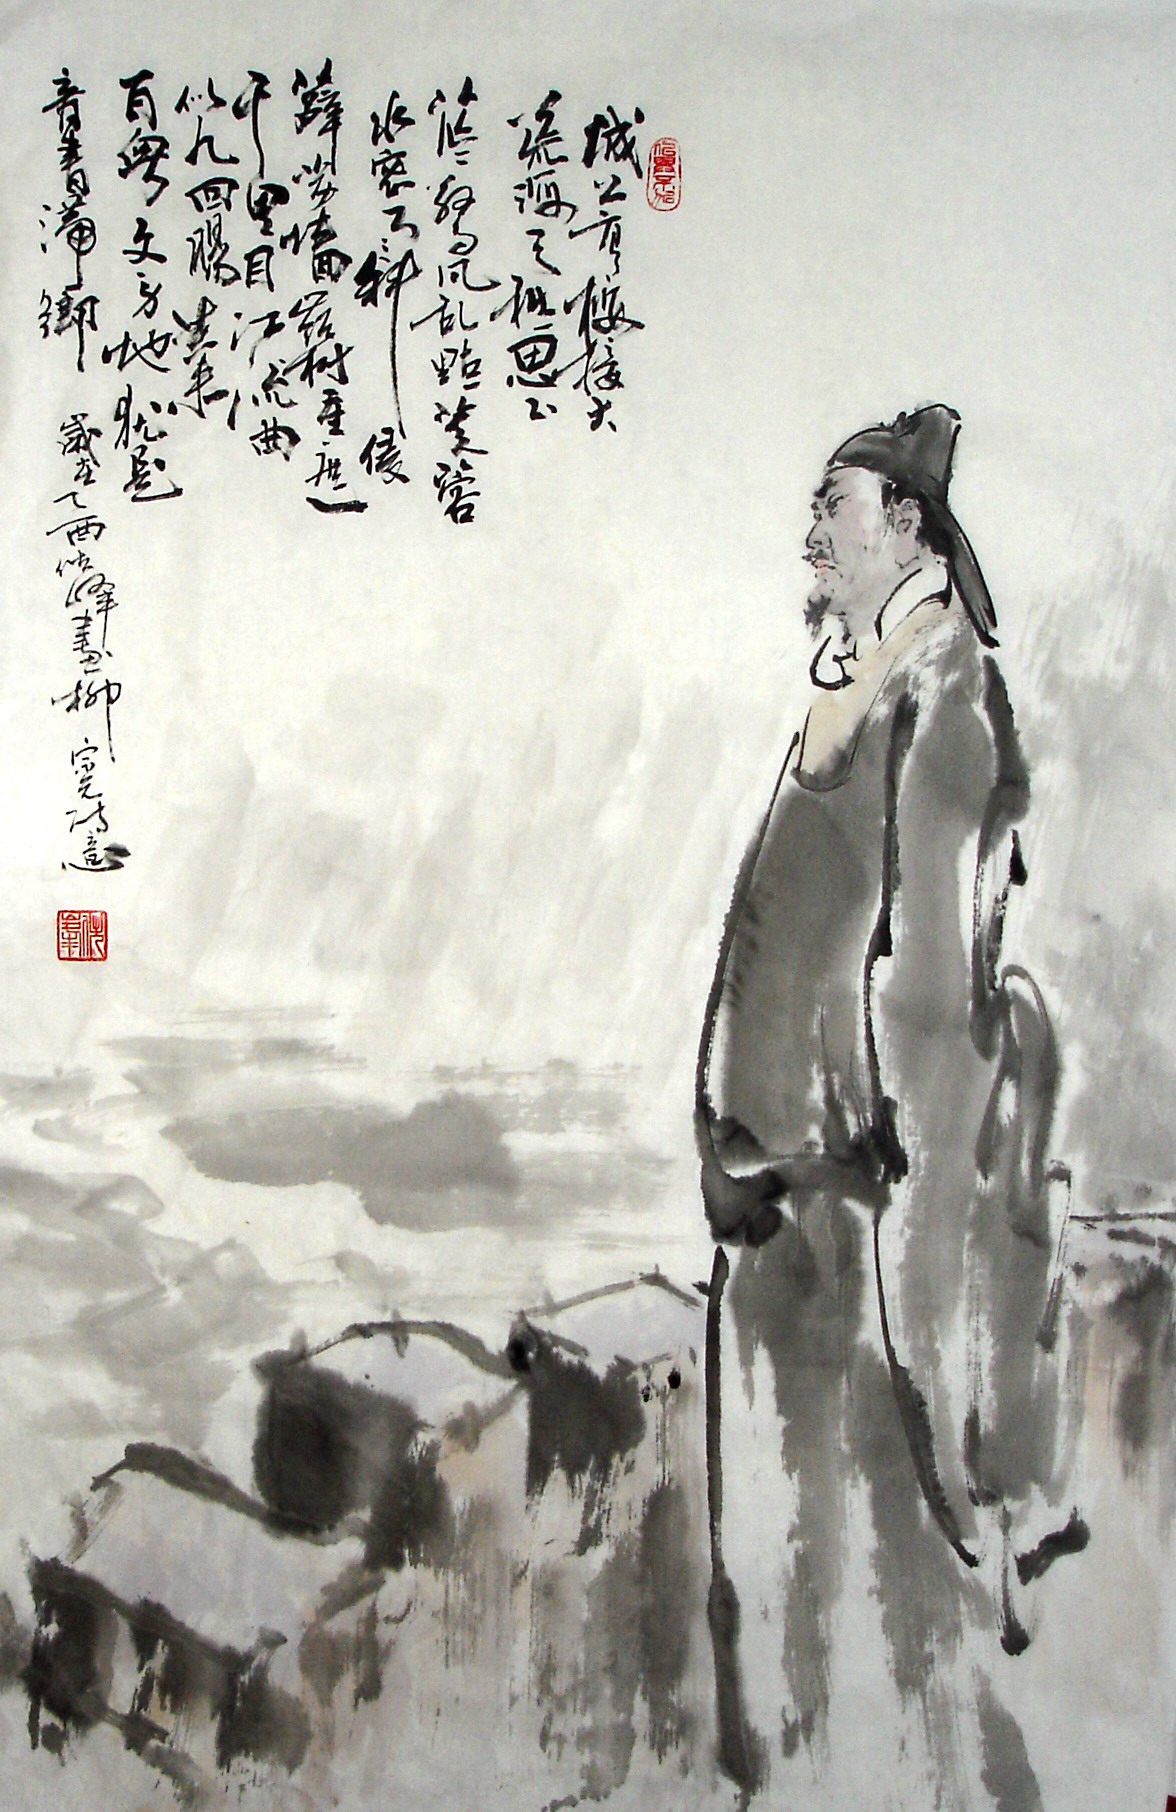 城上高樓接大
荒海天愁思正
茫茫驚风乱颭芙蓉
水密雨斜侵
薜荔墙嶺树重遮
千里目江流曲
似九回腸共来
百粤文身地犹是
音書滞鄉
歲在乙酉峰畫柳宗元诗意